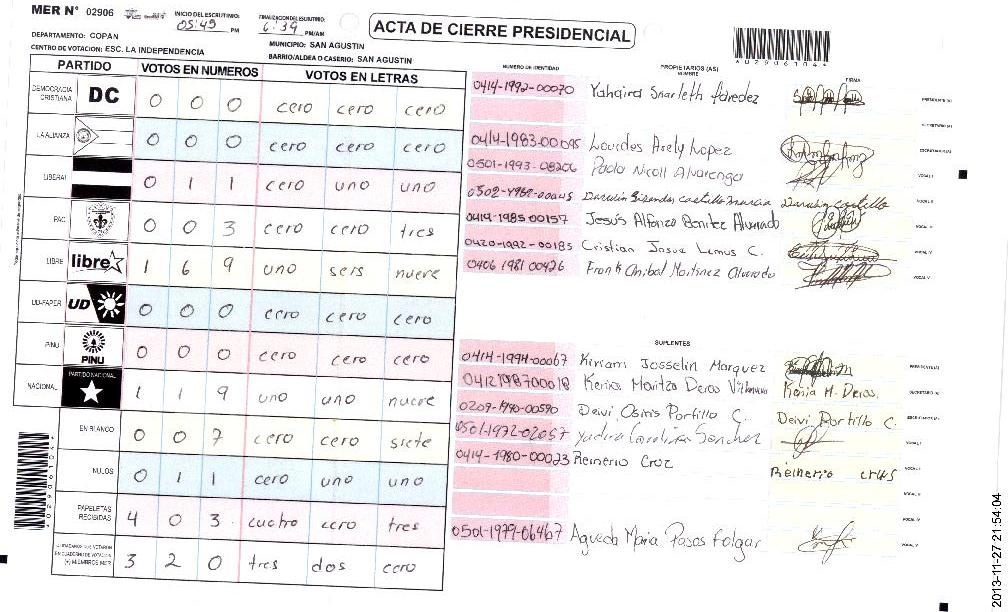 MER N° 02906
INICIO DEL ESCRUTINIO: 05:49 PM
FINALIZACION DEL ESCRUTINIO: 6:39 PM/AM
ACTA DE CIERRE PRESIDENCIAL
DEPARTAMENTO: COPAN
MUNICIPIO: SAN AGUSTIN
CENTRO DE VOTACION: ESC. LA INDEPENDENCIA
BARRIO/ALDEA O CASERIO: SAN AGUSTIN
PARTIDO VOTOS EN NUMEROS VOTOS EN LETRAS
DEMOCRACIA CRISTIANA DC 0 0 0 cero cero cero
LA ALIANZA 0 0 0 cero cero cero
LIBERAL 0 1 1 cero uno uno
PAC 0 0 3 cero cero tres
LIBRE libre 1 6 9 uno seis nueve
UD-FAPER UD 0 0 0 cero cero cero
PINU PINU 0 0 0 cero cero cero
NACIONAL PARTIDO NACIONAL 1 1 9 uno uno nueve
EN BLANCO 0 0 7 cero cero siete
NULOS 0 1 1 cero uno uno
PAPELETAS RECIBIDAS 4 0 3 cuatro cero tres
(+) MIEMBROS MER 3 2 0 tres dos cero
NUMERO DE IDENTIDAD PROPIETARIOS (AS) NOMBRE FIRMA
0414-1992-00070 Yahaira
0414-1983-00095 Lourdes Arely Lopez
0501-1993-08206 Paolo Nicoll Alvarenga
castillo
0414-1985-00157 Jesús Alfonzo Benitez Alvarado
0420-1992-00185 Cristian Josue Lemus C.
0406 1981 00426 Frank Anibal Martinez Alvarado
SUPLENTES
0414-1994-00067 Kiriam Josselin Marquez
0412198700018 Kenia Maritza Deras Villanueva Kenia M. Deras.
0209-1990-00590 Deivi Osiris Portillo C. Deivi Portillo C.
0501-1972-02057 Yadira Carolina Sanchez
0414-1980-00023 Reinerio Cruz Reinerio
Agueda Maria Posas Folgar
*029061044*
2013-11-27 21:54:04